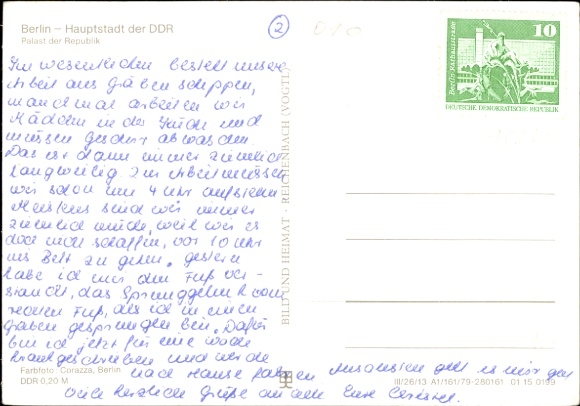 Berlin – Hauptstadt der DDR
Palast der Republik
2
10
Berlin Rathausstrasse
DEUTSCHE DEMOKRATISCHE REPUBLIK
Im wesentlichen besteht unsere
Arbeit aus Gräben schippen,
manchmal arbeiten wir
Mädchen in der Küche und
müssen geschirr abwaschen
Das ist dann immer ziemlich
langweilig. Zur Arbeit müssen
wir schon um 4 Uhr aufstehen
Meistens sind wir immer
ziemlich müde, weil wir es
doch nicht schaffen, vor 10 Uhr
ins Bett zu gehen. Gestern
habe ich mir den Fuß ver-
staucht, das Sprunggelenk vom
rechten Fuß, als ich in einen
Graben gesprungen bin. Dafür
bin ich jetzt für eine Woche
krankgeschrieben und werde
nach Hause fahren. Ansonsten geht es mir gut
Viele herzliche Grüße an alle Eure
BILD UND HEIMAT · REICHENBACH (VOGTL
Farbfoto: Corazza, Berlin
DDR 0,20 M
III/26/13 A1/161/79-280161 01 15 0199